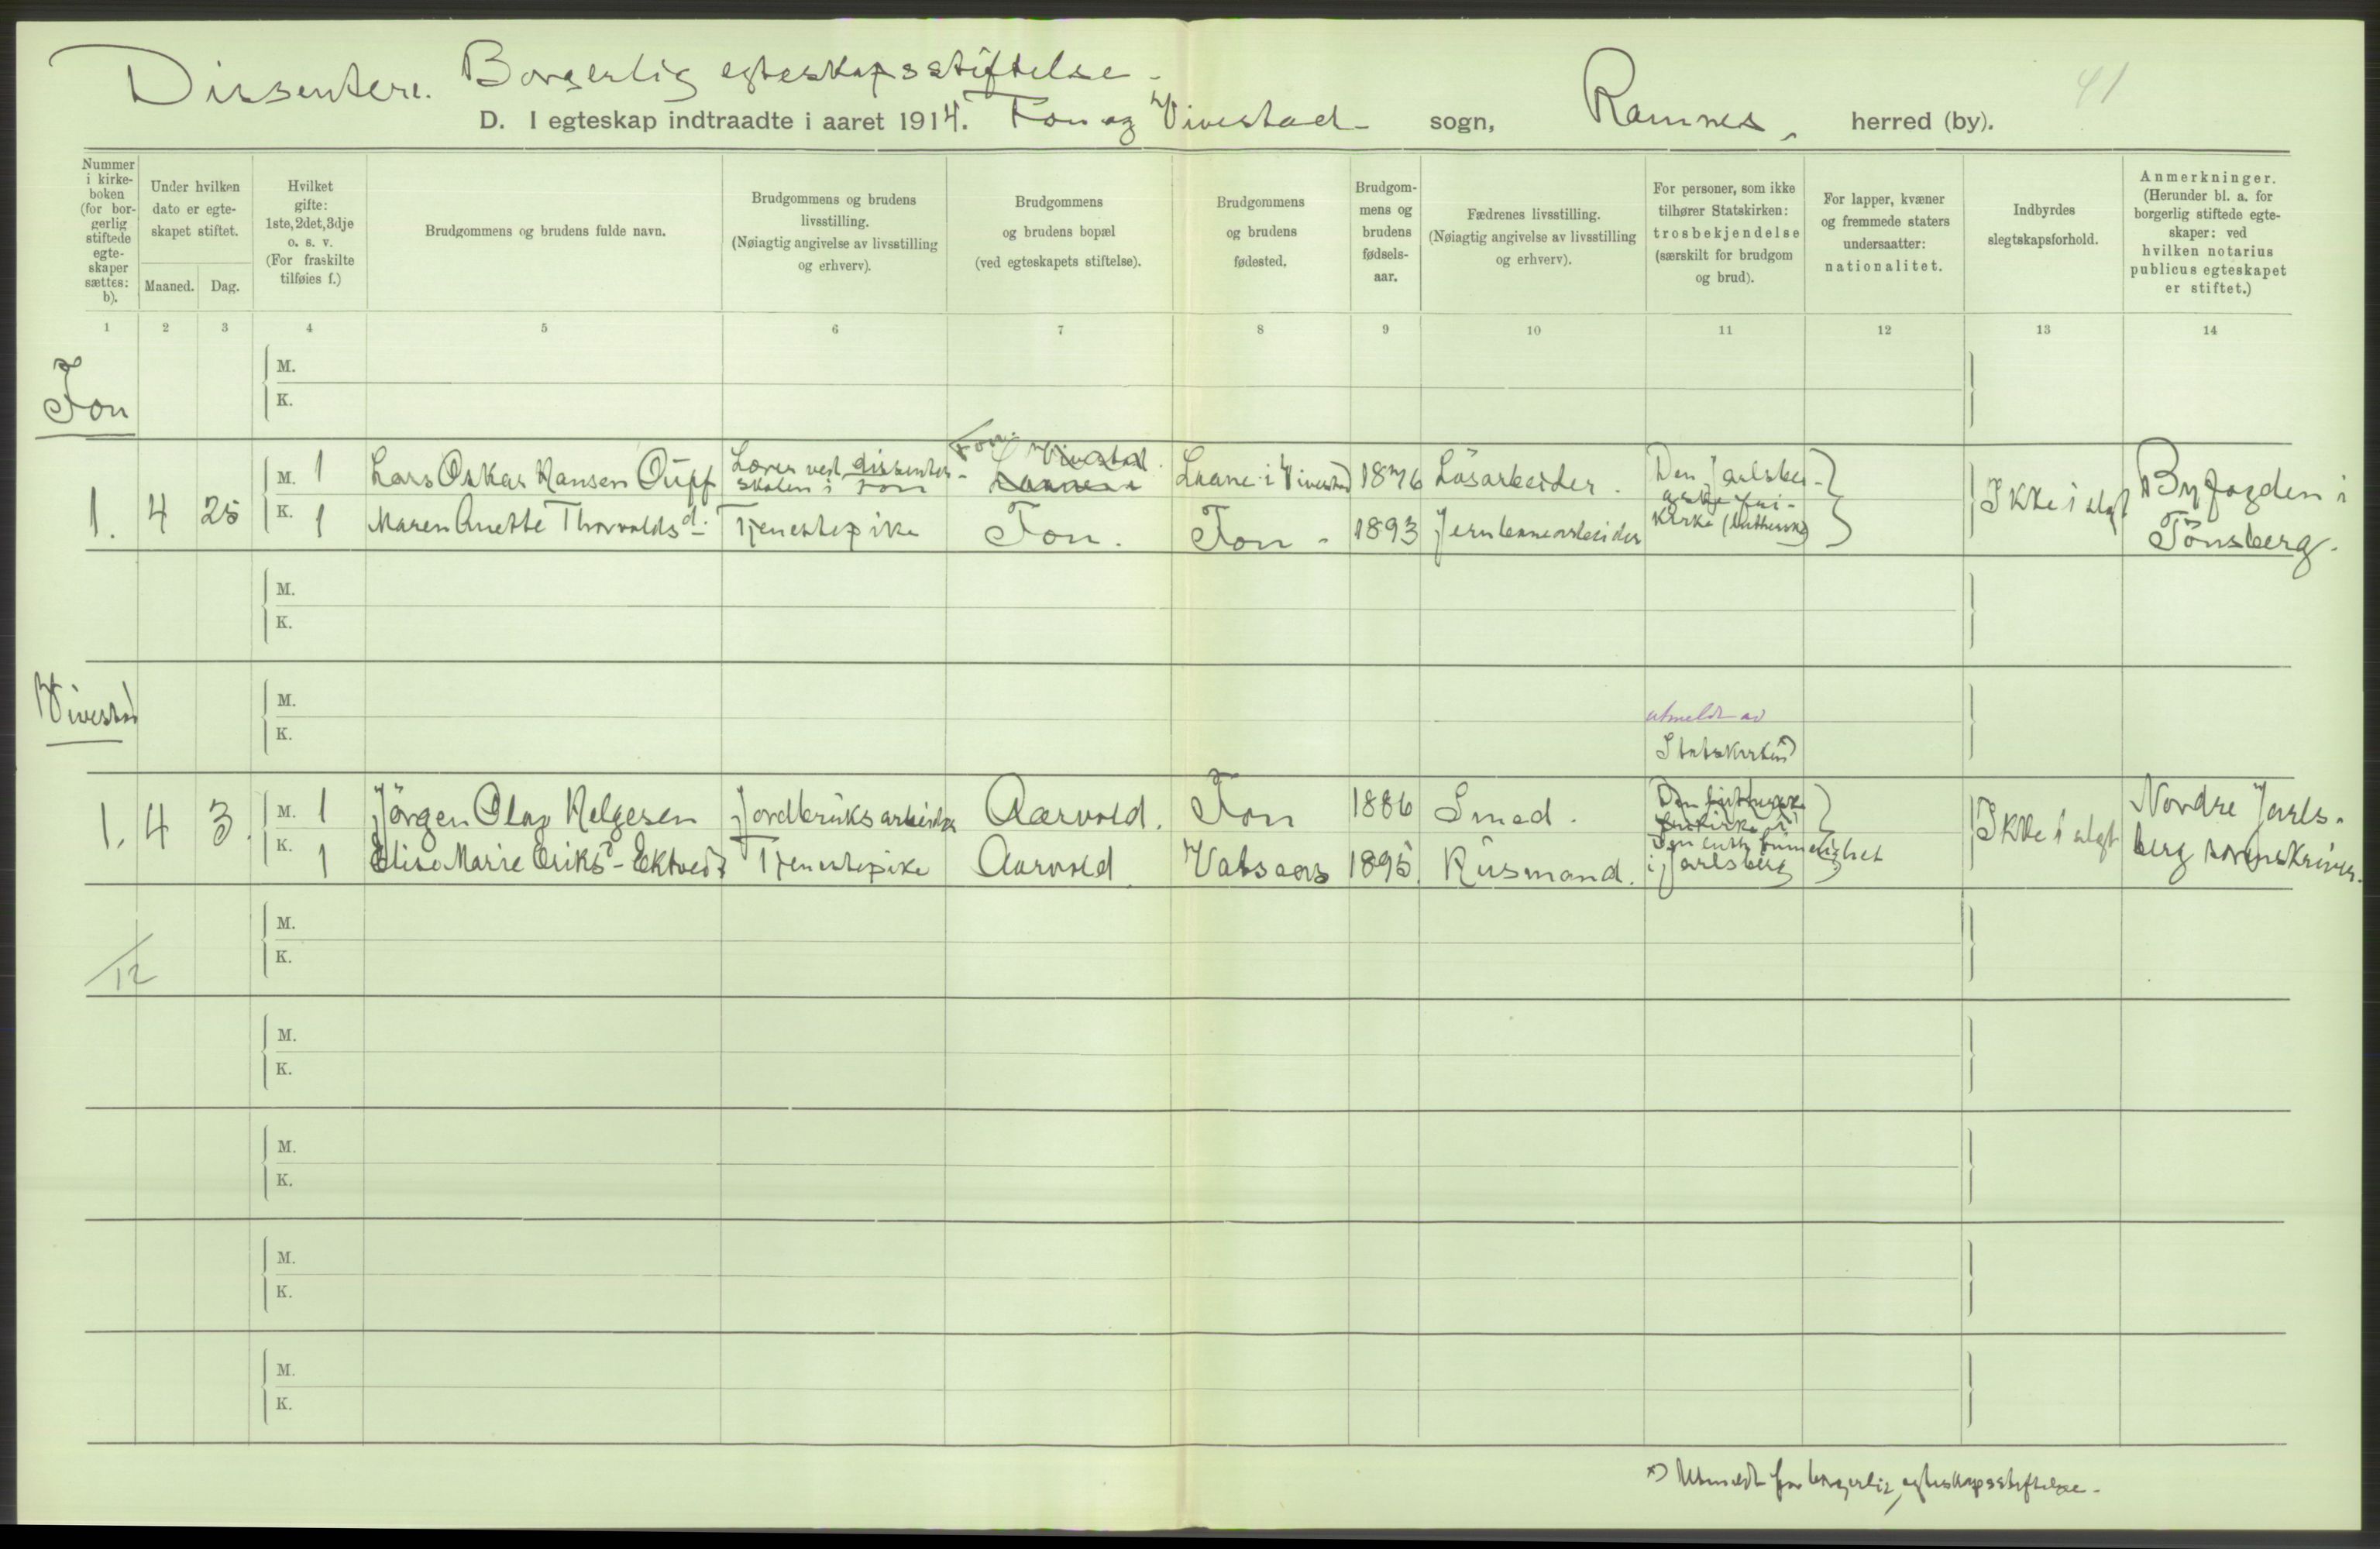 Dissentere. Borgerlig egteskapsstiftelse -
41
D. I egteskap indtraadte i aaret 1914. Fon og Vivestad - sogn, Ramnes, herred (by).
Nummer i kirke-boken (for bor-gerlig stiftede egte-skaper sættes: b).
Under hvilken dato er egte-skapet stiftet.
Maaned. Dag.
Hvilket gifte: 1ste, 2det, 3dje o. s. v. (For fraskilte tilføies f.)
Brudgommens og brudens fulde navn.
Brudgommens og brudens livsstilling. (Nøiagtig angivelse av livsstilling og erhverv).
Brudgommens og brudens bopæl (ved egteskapets stiftelse).
Brudgommens og brudens fødested.
Brudgom-mens og brudens fødsels-aar.
Fædrenes livsstilling. (Nøiagtig angivelse av livsstilling og erhverv).
For personer, som ikke tilhører Statskirken: trosbekjendelse (særskilt for brudgom og brud).
For lapper, kvæner og fremmede staters undersaatter: nationalitet.
Indbyrdes slegtskapsforhold.
Anmerkninger. (Herunder bl. a. for borgerlig stiftede egte-skaper: ved hvilken notarius publicus egteskapet er stiftet.)
1 2 3 4 5 6 7 8 9 10 11 12 13 14
M.
Fon
K.
Fon. Vivestad
M. 1 Lars Oskar Hansen Lærer ved dissenter-skolen i Fon Laane i Vivestad 1876 Løsarbeider. Den Jarlsber-gske fri-kirke (luthersk)
1. 4 25 K. 1 Maren Anette Thorvaldsd. Tjenestepike Fon. Fon - 1893 Jernbanearbeider
Ikke i slegt
Byfogden i Tønsberg.
M.
K.
Vivestad
M.
K.
utmeldt av
Statskirken
1. 4 3. M. 1 Jørgen Olav Helgesen Jordbruksarbeider Aarvold. Fon 1886 Smed.
K. 1 Elise Marie Eriksd - Ektvedt Tjenestepike Aarvold Vatsaas 1895. Husmand.
i Jarlsberg
Ikke i slegt
Nordre Jarls-berg sorenskriver.
M.
K.
12
M.
K.
M.
K.
M.
K.
M.
K.
x) Utmeldt før borgerlig egteskapsstiftelse -